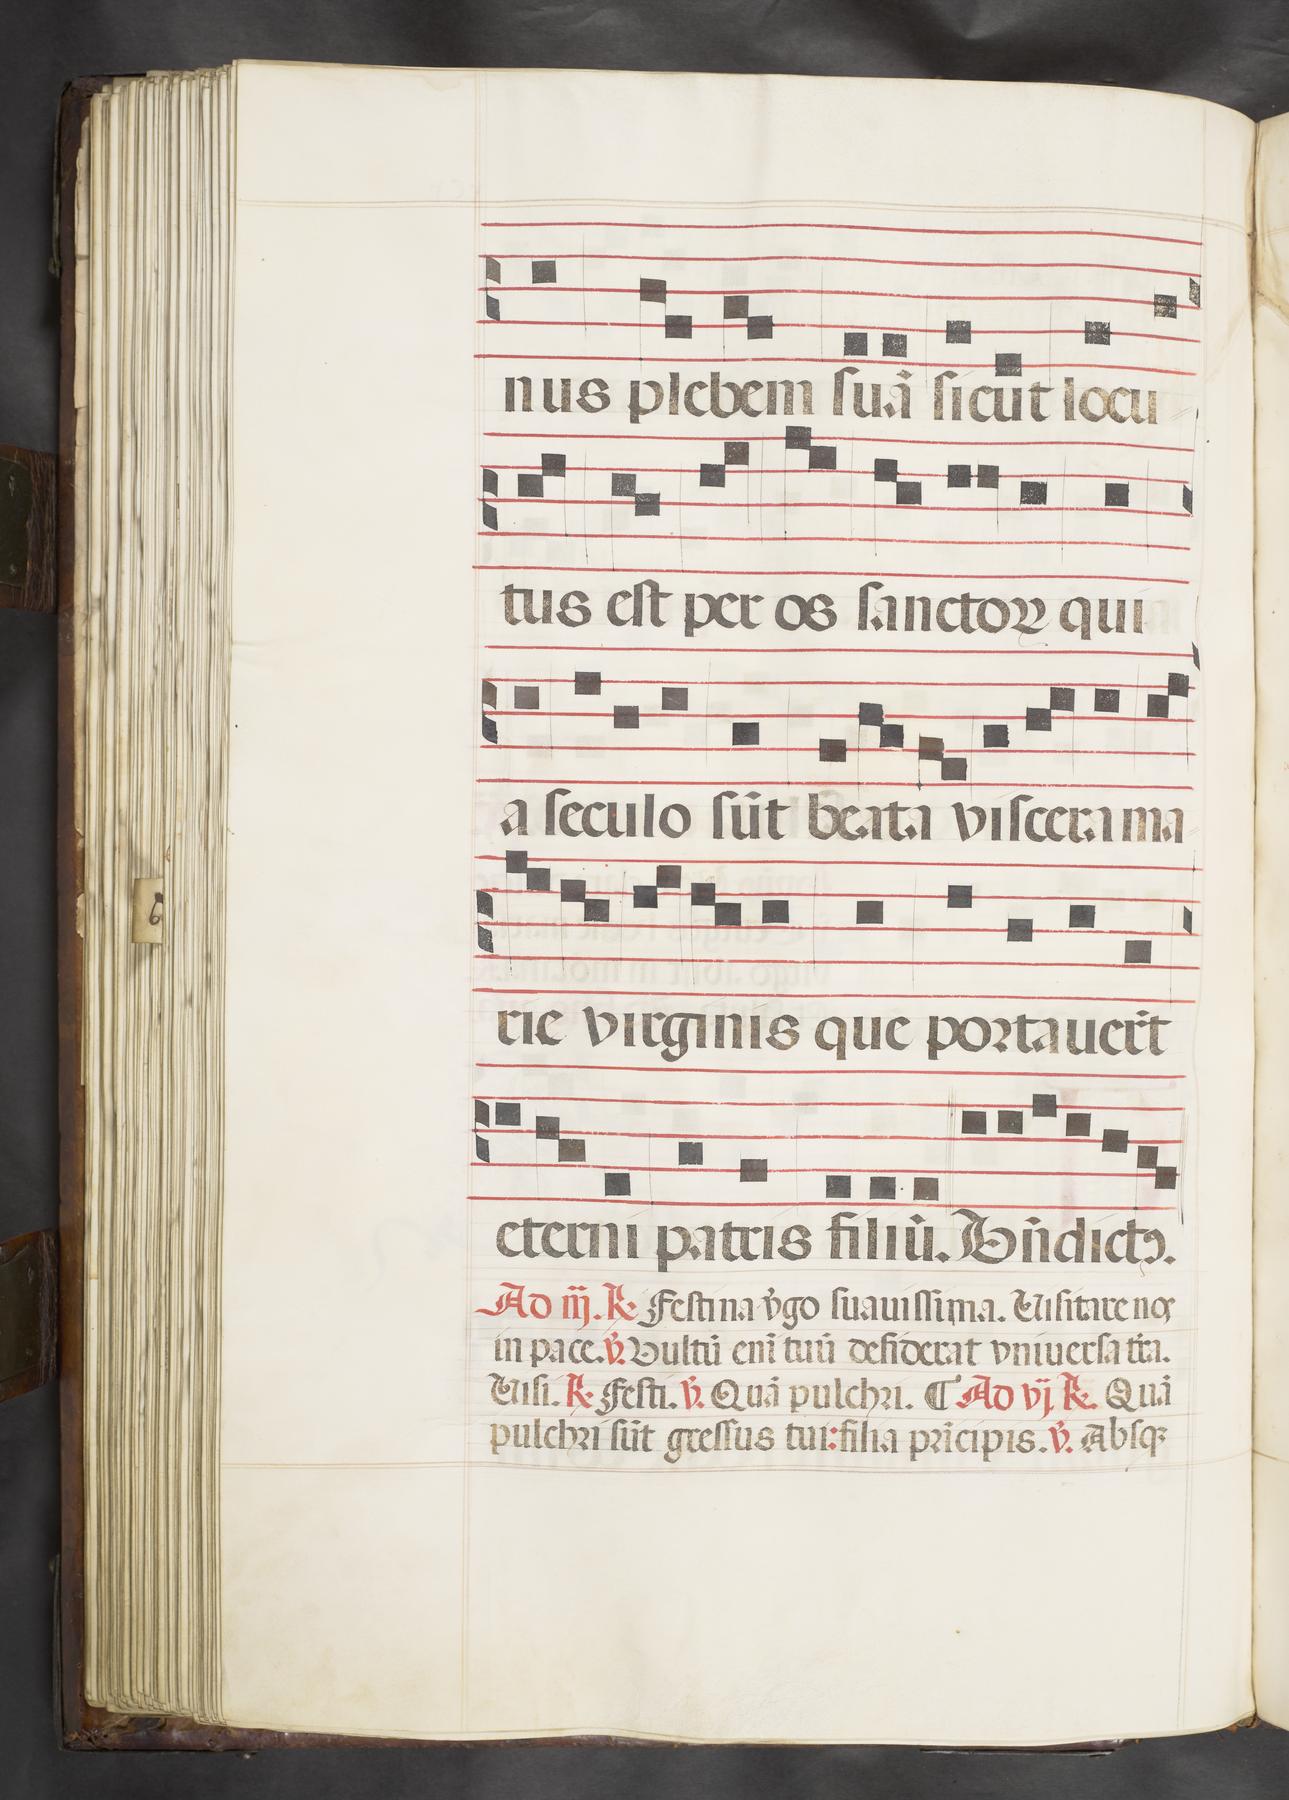 nus plebem suā sicut locu
tus est per os sanctoꝝ qui
a seculo sūt beata viscera ma
rie virginis que portauer̄t
eterni patris filiū. Bn̄dictꝰ.
Ad iij. ℟. Festina v̄go suauissima. Uisitare nos
in pace. ℣. Vultū enī tuū desiderat vniuersa tr̄a.
Uisi. ℟. Festi. ℣. Quā pulchri. ¶ Ad vj ℟. Quā
pulchri sūt gressus tui: filia prīcipis. ℣. Absqꝫ
6